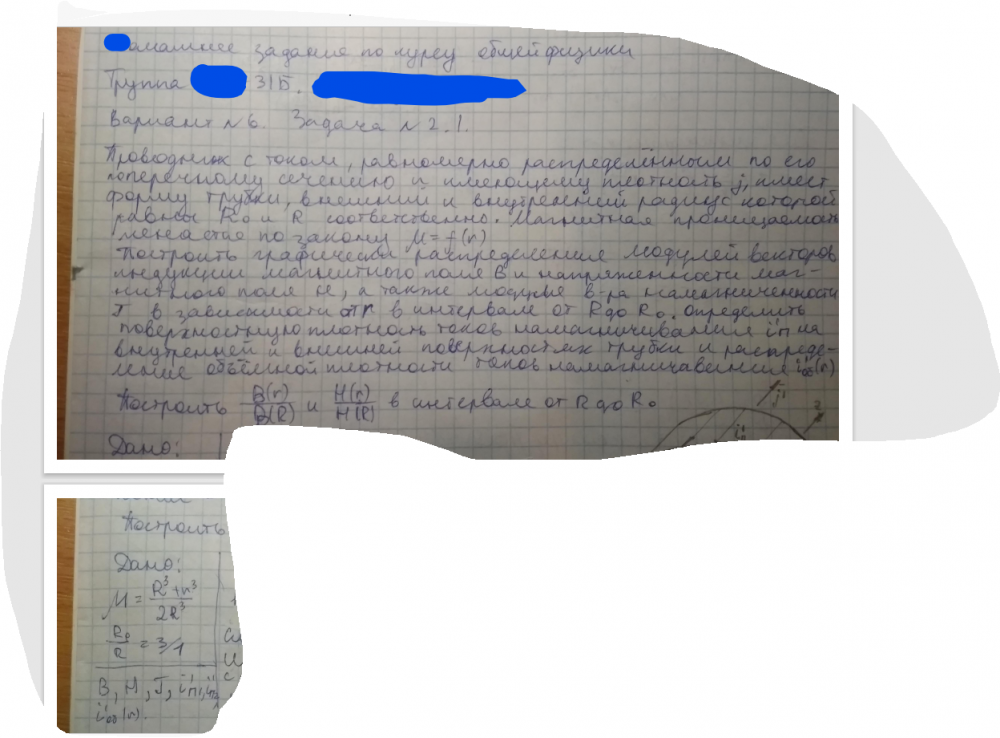 омашнее задание по курсу общей физики
Группа 31Б.
Вариант №6. Задача №2.1.
Проводник с током, равномерно распределённым по его
поперечному сечению и имеющему плотность j, имеет
форму трубки, внешний и внутренний радиус которой
равны R₀ и R соответственно. Магнитная проницаемость
меняется по закону μ = f(r)
Построить графически распределения модулей векторов
индукции магнитного поля B и напряженности маг-
нитного поля H, а также модуля в-ра намагниченности
J в зависимости от r в интервале от R до R₀. Определить
поверхностную плотность токов намагничивания i'п на
внутренней и внешней поверхностях трубки и распреде-
ление объёмной плотности токов намагничивания i'об(r)
Построить B(r)/B(R) и H(r)/H(R) в интервале от R до R₀
Дано:
Построить
Дано:
μ = (R³+r³)/2R³
R₀/R = 3/1
B, H, J, i'п1, i'п2
i'об(r).